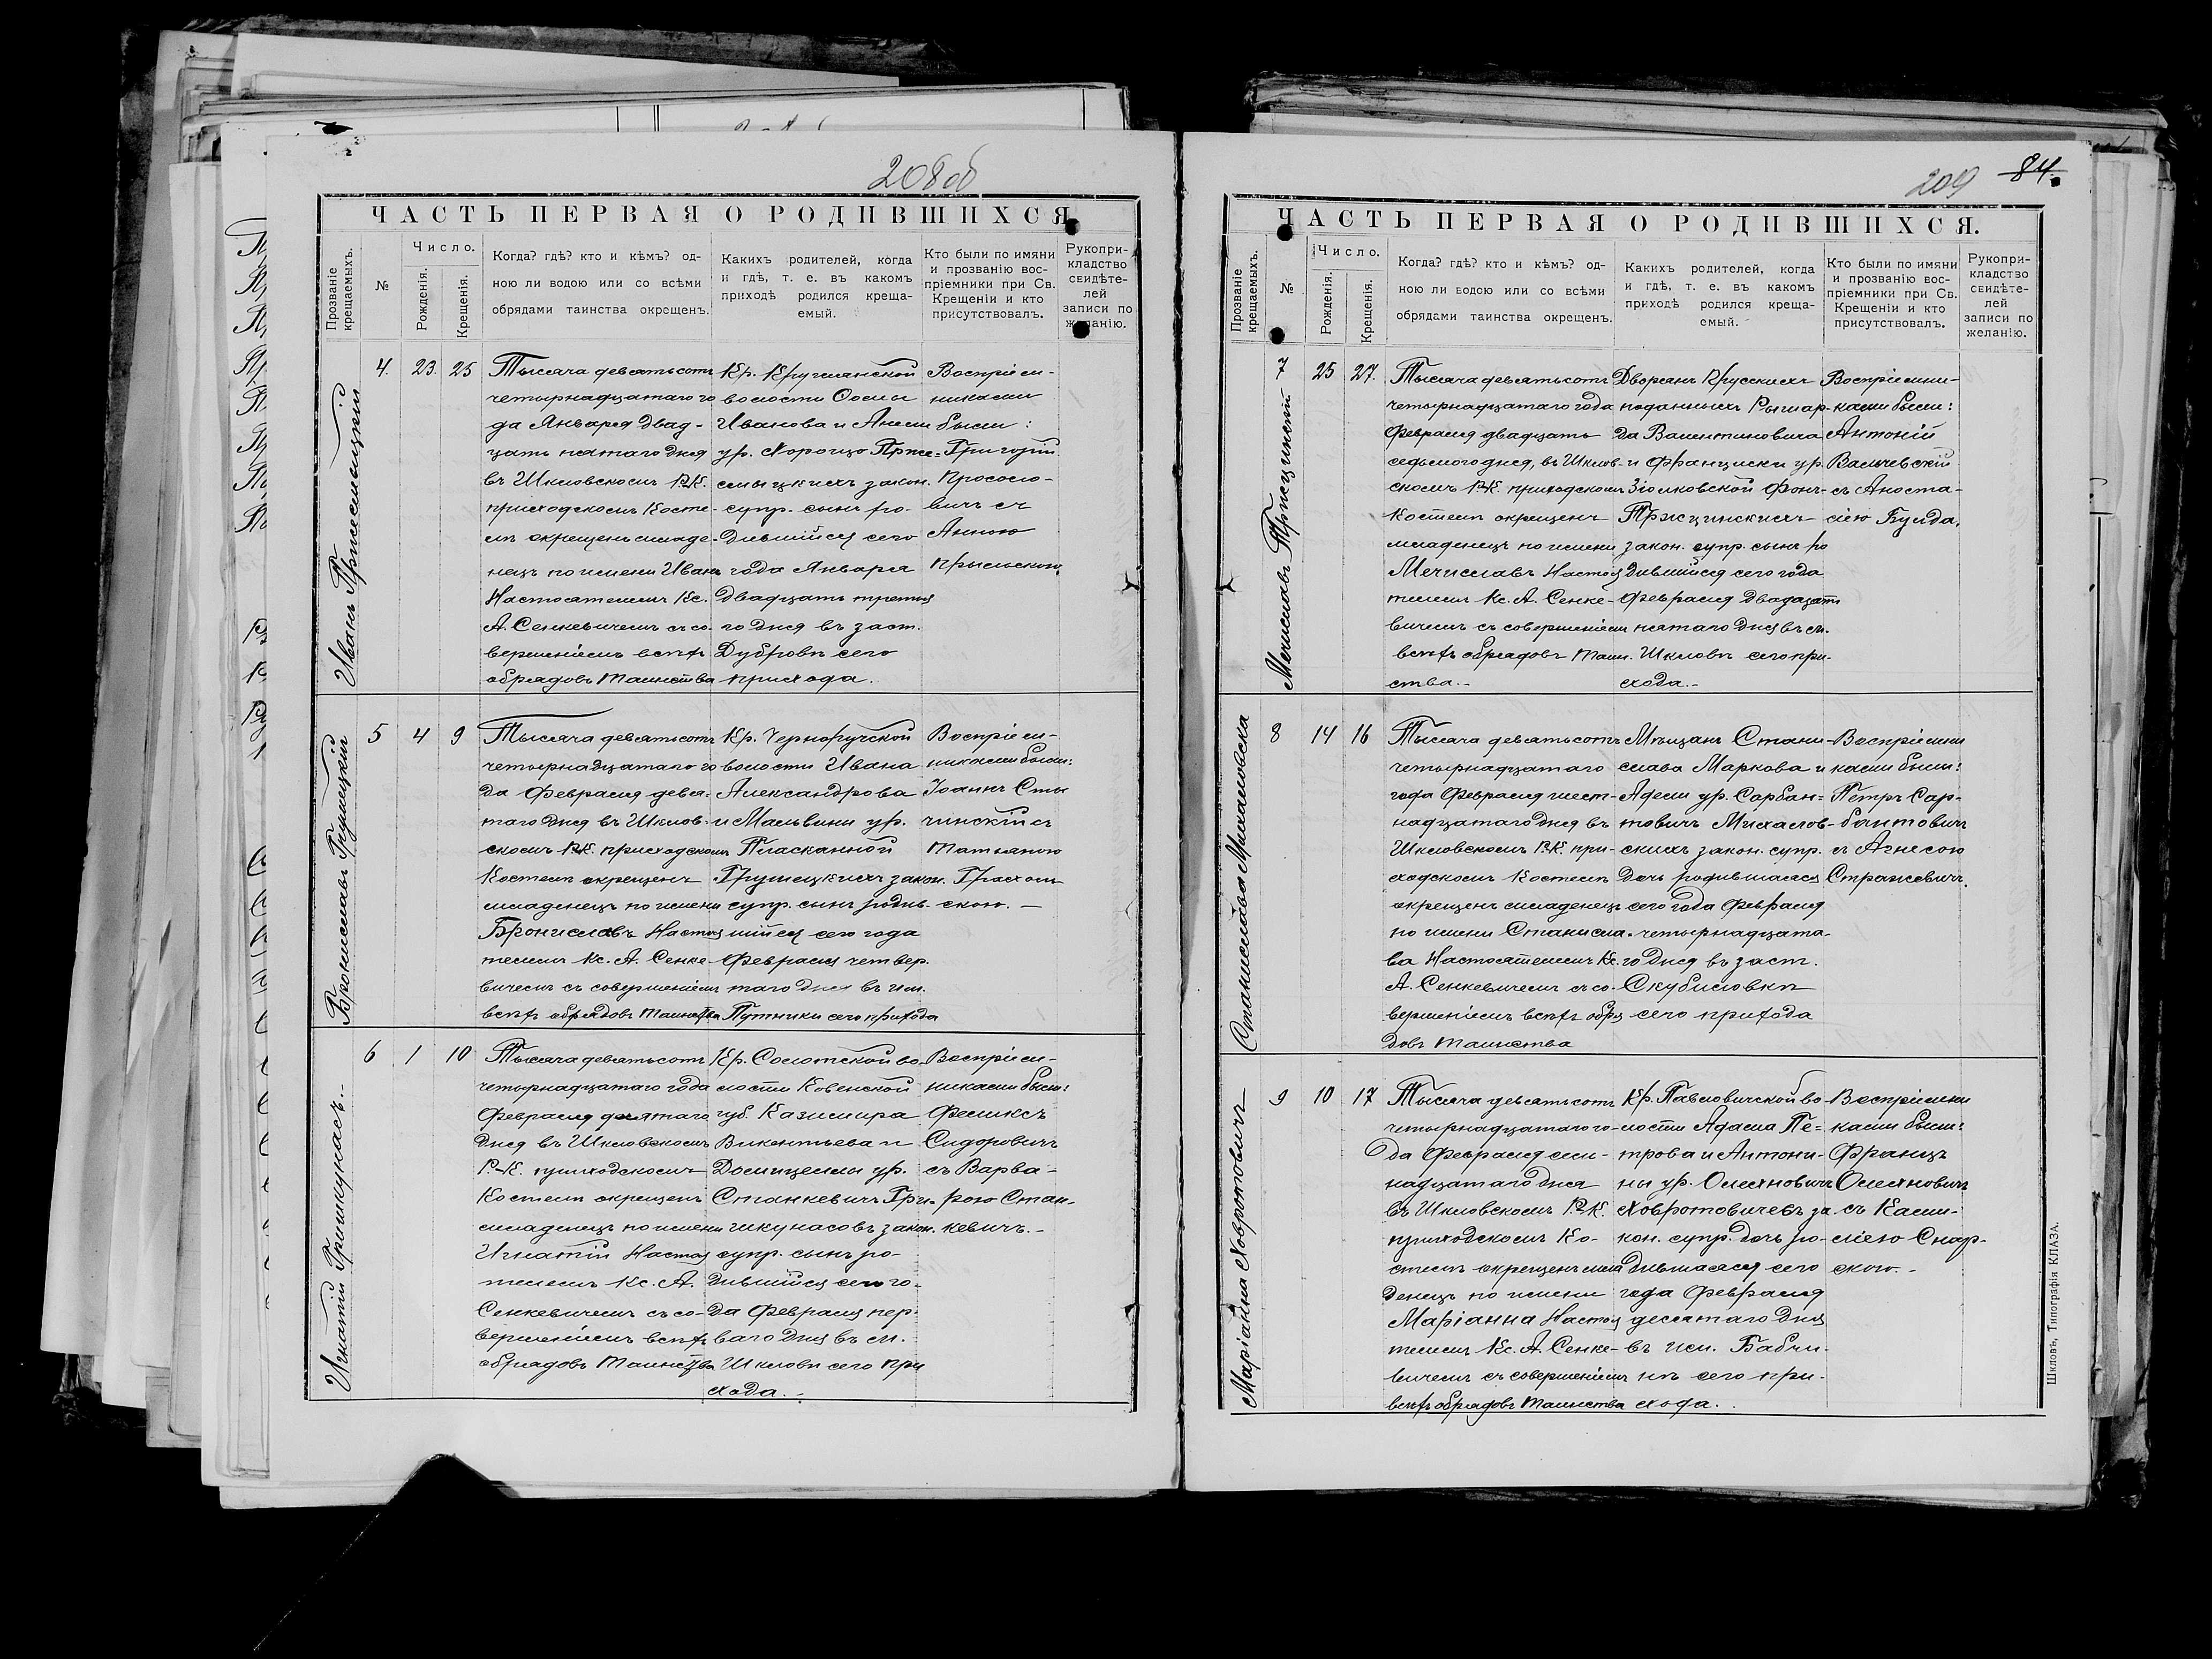 208 об
ЧАСТЬ ПЕРВАЯ О РОДИВШИХСЯ
Прозваніе крещаемыхъ.
№
Число.
Рожденія.
Крещенія.
Когда? гдѣ? кто и кѣмъ? од-
ною ли водою или со всѣми
обрядами таинства окрещенъ.
Какихъ родителей, когда
и гдѣ, т. е. въ какомъ
приходѣ родился креща-
емый.
Кто были по имяни
и прозванію вос-
пріемники при Св.
Крещеніи и кто
присутствовалъ.
Рукопри-
кладство
свидѣте-
лей
записи по
желанію.
Иванъ Пржесмыцкій
4.
23.
25
Тысяча девятьсотъ
четырнадцатаго го
да Января двад-
цать пятаго дня
въ Шкловскомъ Р.-К.
приходскомъ Косте-
лѣ окрещенъ младе-
нецъ по имени Иванъ
Настоятелемъ Кс.
А. Сенкевичемъ съ со-
вершеніемъ всѣхъ
обрядовъ таинства
Кр. Круглянской
волости Осипа
Иванова и Анели
ур. Хоронзо Прже-
смыцкихъ закон.
супр. сынъ ро-
дившійся сего
года Января
двадцать третья
го дня въ заст.
Дубровѣ сего
прихода.
Воспріем-
никами
были:
Григорій
съ
Анною
Брониславъ Грушецкій
5
4
9
Тысяча девятьсотъ
четырнадцатаго го
да Февраля девя-
таго дня въ Шклов-
скомъ Р.-К. приходскомъ
Костелѣ окрещенъ
младенецъ по имени
Брониславъ Настоя
телемъ Кс. А. Сенке-
вичемъ съ совершеніемъ
всѣхъ обрядовъ таинства
Кр. Черноручской
волости Ивана
Александрова
и Мальвины ур.
Пласканной
Грушецкихъ закон.
супр. сынъ родив-
шійся сего года
Февраля четвер-
таго дня въ им.
Путники сего прихода
Воспріем-
никами были:
Іоаннъ Сты
чинскій съ
Татьяною
Грасхов
скою. —
Игнатій Гришкунасъ.
6
1
10
Тысяча девятьсотъ
четырнадцатаго года
Февраля десятаго
дня въ Шкловскомъ
Р.-К. приходскомъ
Костелѣ окрещенъ
младенецъ по имени
Игнатій Настоя
телемъ Кс. А.
Сенкевичемъ съ со-
вершеніемъ всѣхъ
обрядовъ таинства
Кр. Солотской во-
лости Ковенской
губ. Казимира
Викентьева и
Домицеллы ур.
Станкевичъ Гри-
шкунасовъ закон.
супр. сынъ ро-
дившійся сего го-
да Февраля пер-
ваго дня въ м.
Шкловѣ сего при
хода.
Воспріем-
никами были:
Феликсъ
Сидоровичъ
съ Варва-
рою Стан-
кевичъ.
209
84.
ЧАСТЬ ПЕРВАЯ О РОДИВШИХСЯ.
Прозваніе крещаемыхъ.
№
Число.
Рожденія.
Крещенія.
Когда? гдѣ? кто и кѣмъ? од-
ною ли водою или со всѣми
обрядами таинства окрещенъ.
Какихъ родителей, когда
и гдѣ, т. е. въ какомъ
приходѣ родился креща-
емый.
Кто были по имяни
и прозванію вос-
пріемники при Св.
Крещеніи и кто
присутствовалъ.
Рукопри-
кладство
свидѣте-
лей
записи по
желанію.
Мечиславъ Тржецинскій
7
25
27.
Тысяча девятьсотъ
четырнадцатаго года
Февраля двадцать
седьмого дня, въ Шклов-
скомъ Р.-К. приходскомъ
Костелѣ окрещенъ
младенецъ по имени
Мечиславъ Настоя
телемъ Кс. А. Сенке-
вичемъ съ совершеніемъ
всѣхъ обрядовъ таин-
ства.-
Дворянъ Прусскихъ
поданныхъ Рышар-
да Валентиновича
и Франциски ур.
Зіолковской Фонъ-
Тржцинскихъ
закон. супр. сынъ ро
дившійся сего года
Февраля двадцать
пятаго дня въ м.
Шкловѣ сего при-
хода.-
Воспріемни-
ками были:
Антоній
Вальчевскій
съ Аноста-
сіею Буйда.
Станислава Михаловска
8
14
16
Тысяча девятьсотъ
четырнадцатаго
года Февраля шест-
надцатаго дня въ
Шкловскомъ Р.-К. при-
ходскомъ Костелѣ
окрещенъ младенецъ
по имени Станисла-
ва Настоятелемъ Кс.
А. Сенкевичемъ съ со-
вершеніемъ всѣхъ обря
довъ таинства
Мѣщанъ Стани-
слава Маркова и
Адели ур. Сорбан-
товичъ Михалов-
скихъ закон. супр.
дочь родившаяся
сего года Февраля
четырнадцата-
го дня въ заст.
Скубиловкѣ
сего прихода
Воспріемни
ками были:
Петръ Сар-
бантовичъ
съ Агнесою
Стражевичъ.
Маріанна Ховротовичъ
9
10
17
Тысяча девятьсотъ
четырнадцатаго го-
да Февраля сем-
надцатаго дня
въ Шкловскомъ Р.-К.
приходскомъ Ко-
стелѣ окрещенъ мла
денецъ по имени
Маріанна Настоя
телемъ Кс. А. Сенке-
вичемъ съ совершеніемъ
всѣхъ обрядовъ таинства
Кр. Павловичской во-
лости Адама Пе-
трова и Антони-
ны ур. Олехновичъ
Ховротовичевъ за-
кон. супр. дочь ро-
дившаяся сего
года Февраля
десятаго дня
въ им. Бабчи-
нѣ сего при-
хода.
Воспріемни
ками были:
Францъ
Олехновичъ
съ Ками-
ліею Снар-
скою.-
Шкловъ, Типографія КЛАЗА.